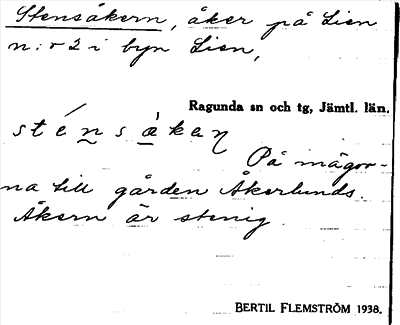 Stensåkern, åker på Lien
n:r 2 i byn Lien,
Ragunda sn och tg, Jämtl. län.
sténsàkaṇ
På mägor-
na till gården Åkerlunds.
Åkern är stenig.
BERTIL FLEMSTRÖM 1938.